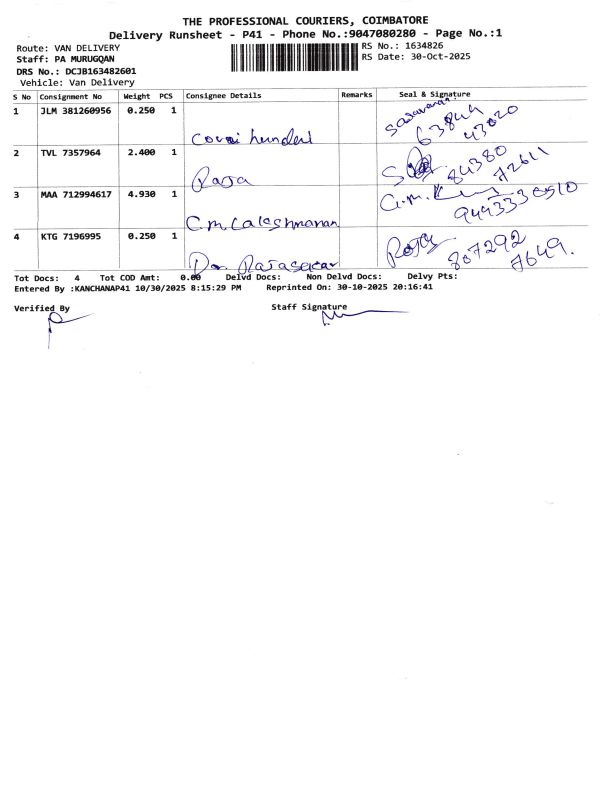 THE PROFESSIONAL COURIERS, COIMBATORE
Delivery Runsheet - P41 - Phone No.:9047080280 - Page No.:1
Route: VAN DELIVERY
RS No.: 1634826
Staff: PA MURUGQAN
RS Date: 30-Oct-2025
DRS No.: DCJB163482601
Vehicle: Van Delivery
S No Consignment No Weight PCS Consignee Details Remarks Seal & Signature
1 JLM 381260956 0.250 1
Saravanan
63844
43020
2 TVL 7357964 2.400 1
Raja
84380
72611
3 MAA 712994617 4.930 1
G.M.
4 KTG 7196995 0.250 1
Raja
807292
7649.
Tot Docs: 4 Tot COD Amt: 0.00 Delvd Docs: Non Delvd Docs: Delvy Pts:
Entered By :KANCHANAP41 10/30/2025 8:15:29 PM Reprinted On: 30-10-2025 20:16:41
Verified By Staff Signature